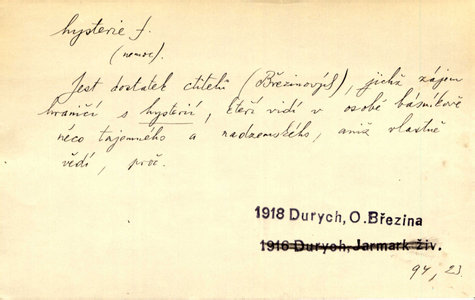 hysterie f.
(nemoc).
Jest dostatek ctitelů (Březinových), jichž zájem
hraničí s hysterií, kteří vidí v osobě básníkově
něco tajemného a nadzemského, aniž vlastně
vědí, proč.
1918 Durych, O. Březina
1916 Durych, Jarmark živ.
94, 23.